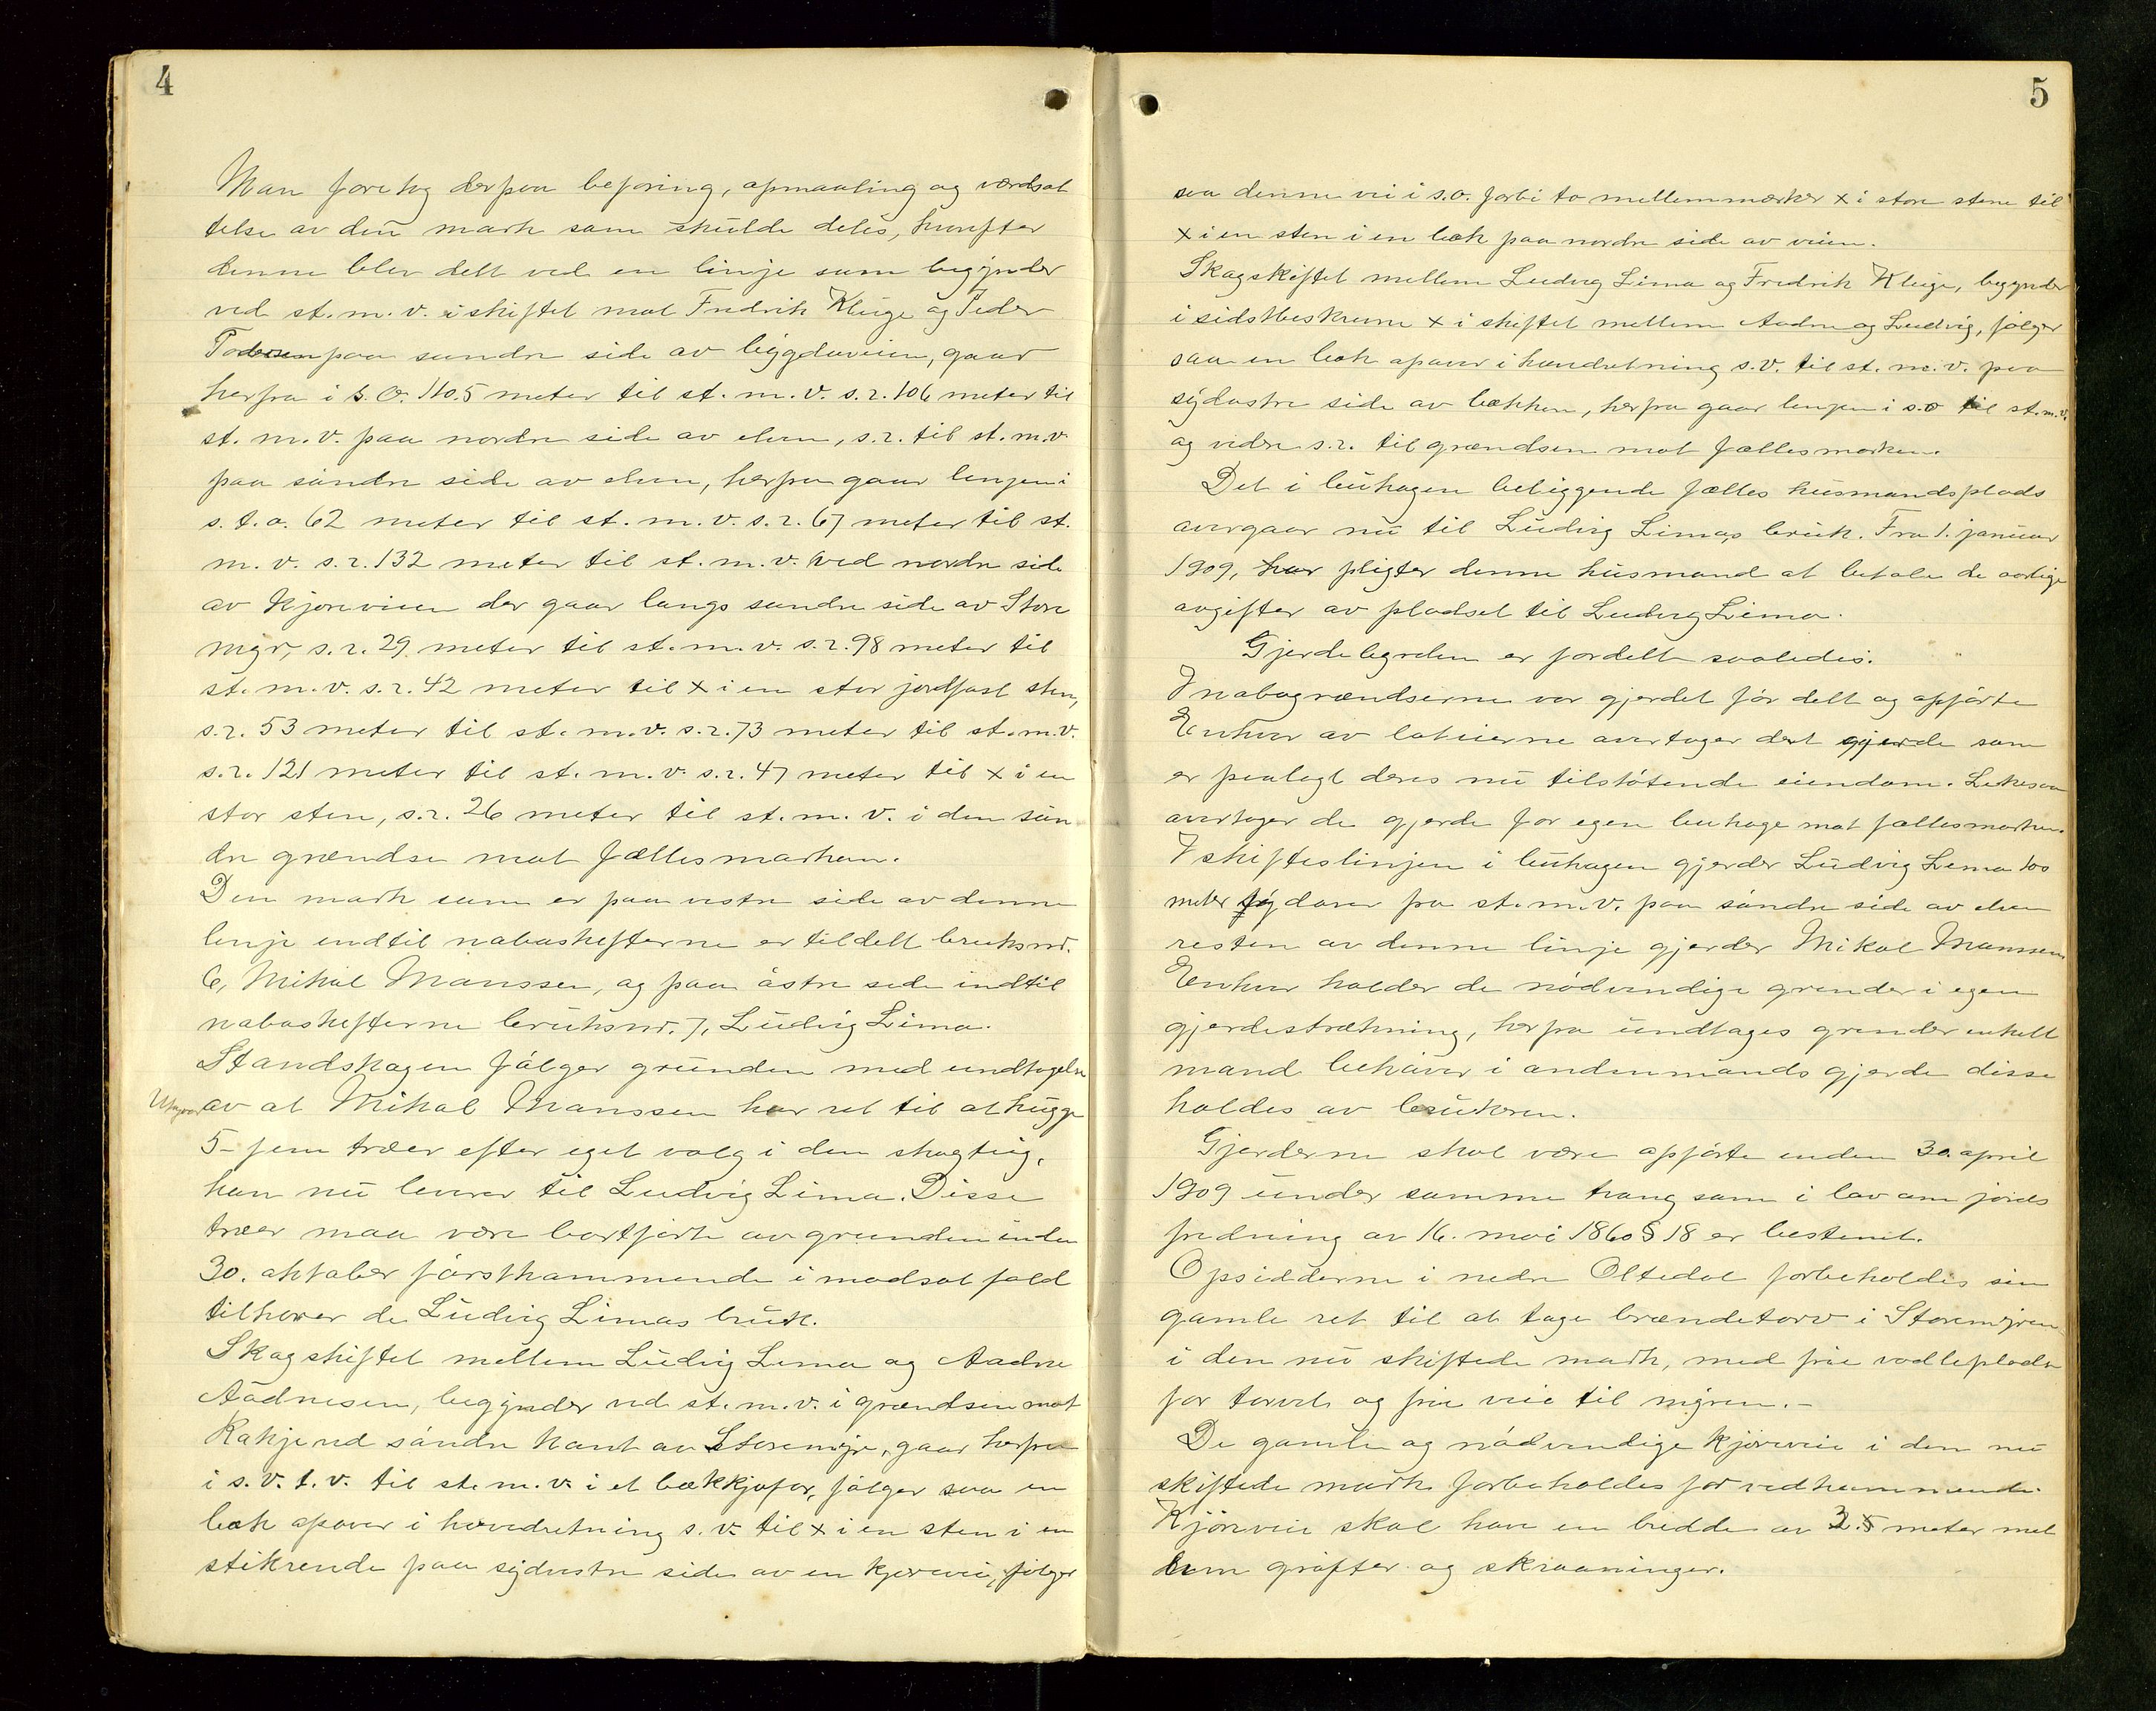 4
Man foretog derpaa befaring, opmaaling og værdsæt
telse av den mark som skulde deles, hvorefter
denne blev delt ved en linje som begynder
ved st. m. v. i skiftet mot Fredrik Kluge og Peder
Pedersen paa søndre side av bygdaveien, gaar
herfra i s. o. 110.5 meter til st. m. v. s. r. 106 meter til
st. m. v. paa nordre side av elven, s. r. til st. m. v.
paa søndre side av elven, herfra gaar linjen i
s. t. o. 62 meter til st. m. v. s. r. 67 meter til st.
m. v. s. r. 132 meter til st. m. v. ved nordre side
av Kjøreveien der gaar langs søndre side av Store
myr, s. r. 29 meter til st. m. v. s. r. 98 meter til
st. m. v. s. r. 42 meter til x i en stor jordfast sten,
s. r. 53 meter til st. m. v. s. r. 73 meter til st. m. v.
s. r. 121 meter til st. m. v. s. r. 47 meter til x i en
stor sten, s. r. 26 meter til st. m. v. i den søn
dre grændse mot fællesmarken.
Den mark som er paa vestre side av denne
linje indtil naboskifterne er tildelt bruksnr.
6, Mikal Maanssen, og paa østre side indtil
naboskifterne bruksnr. 7, Ludvig Lima.
Standskogen følger grunden med undtagelse
av at Mikal Maanssen har ret til at hugge
5 - fem træer efter eget valg i den skogteig,
han nu leverer til Ludvig Lima. Disse
træer maa være bortførte av grunden inden
30. oktober førstkommende i modsat fald
tilhører de Ludvig Limas bruk.
Skogskiftet mellem Ludvig Lima og Aadne
Aadnesen, begynder ved st. m. v. i grændsen mot
Rakje ved søndre kant av Storemyr, gaar herfra
i s. v. t. v. til st. m. v. i et bækkjøfar, følger saa en
bæk opover i hovedretning s. v. til x i en sten i en
stikrende paa sydvestre side av en kjørevei, følger
5
saa denne vei i s. o. forbi to mellemmerker x i store stene til
x i en sten i en bæk paa nordre side av veien.
Skogskiftet mellem Ludvig Lima og Fredrik Kluge, begynder
i sidstbeskrevne x i skiftet mellem Aadne og Ludvig, følger
saa en bæk opover i hovedretning s. v. til st. m. v. paa
sydøstre side av bækken, herfra gaar linjen i s. o til st. m. v.
og videre s. r. til grændsen mot fællesmarken.
Det i buhagen beliggende fælles husmandsplads
overgaar nu til Ludvig Limas bruk. Fra 1. januar
1909, pligter denne husmand at betale de aarlige
avgifter av pladset til Ludvig Lima.
Gjerdebyrden er fordelt saaledes.
I nabogrændserne var gjerdet før delt og opført
Enhver av lotteierne overtager det gjerde som
er paalagt deres nu tilstøtende eiendom. Likesaa
overtager de gjerde for egen buhage mot fællesmarken.
I skifteslinjen i buhagen gjerder Ludvig Lima 100
meter sydover fra st. m. v. paa søndre side av elven
resten av denne linje gjerder Mikal Maanssen
Enhver holder de nødvendige grinder i egen
gjerdestrækning, herfra undtages grinder enkelt
mand behøver i andenmands gjerde disse
holdes av brukeren.
Gjerderne skal være opførte inden 30. april
1909 under samme tvang som i lov om jords
fredning av 16. mai 1860 § 18 er bestemt.
Opsidderne i nedre Oltedal forbeholdes sin
gamle ret til at tage brændetorv i Storemyren
i den nu skiftede mark, med frie vadleplads
for torvet og frie veie til myren. -
De gamle og nødvendige kjøreveie i den nu
skiftede mark forbeholdes for vedkommende.
Kjøreveie skal have en bredde av meter mel
lem grøfter og skraaninger.